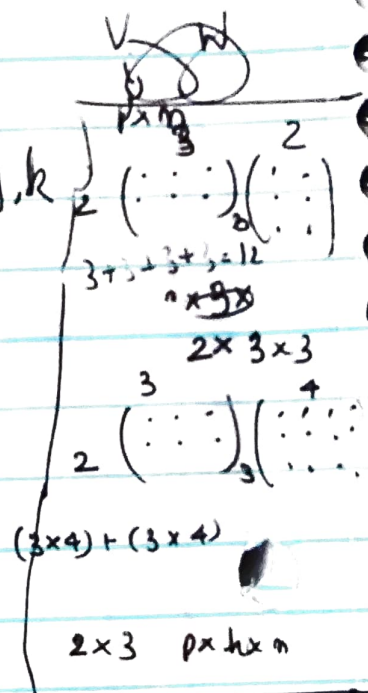 V W
3 2
2 3
3+3+3+3=12
2 × 3 × 3
3 4
2 3
(3×4) + (3×4)
2×3 p×k×n